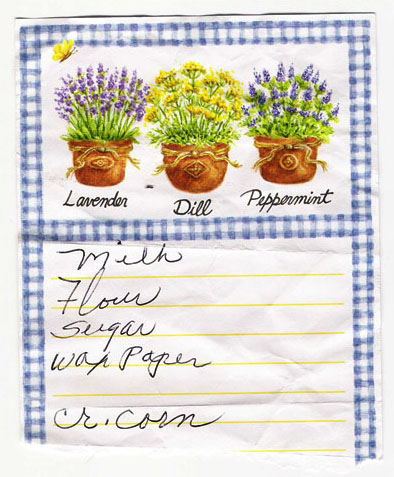 Lavender Dill Peppermint
Milk
Flour
Sugar
Wax Paper
Cr. Corn